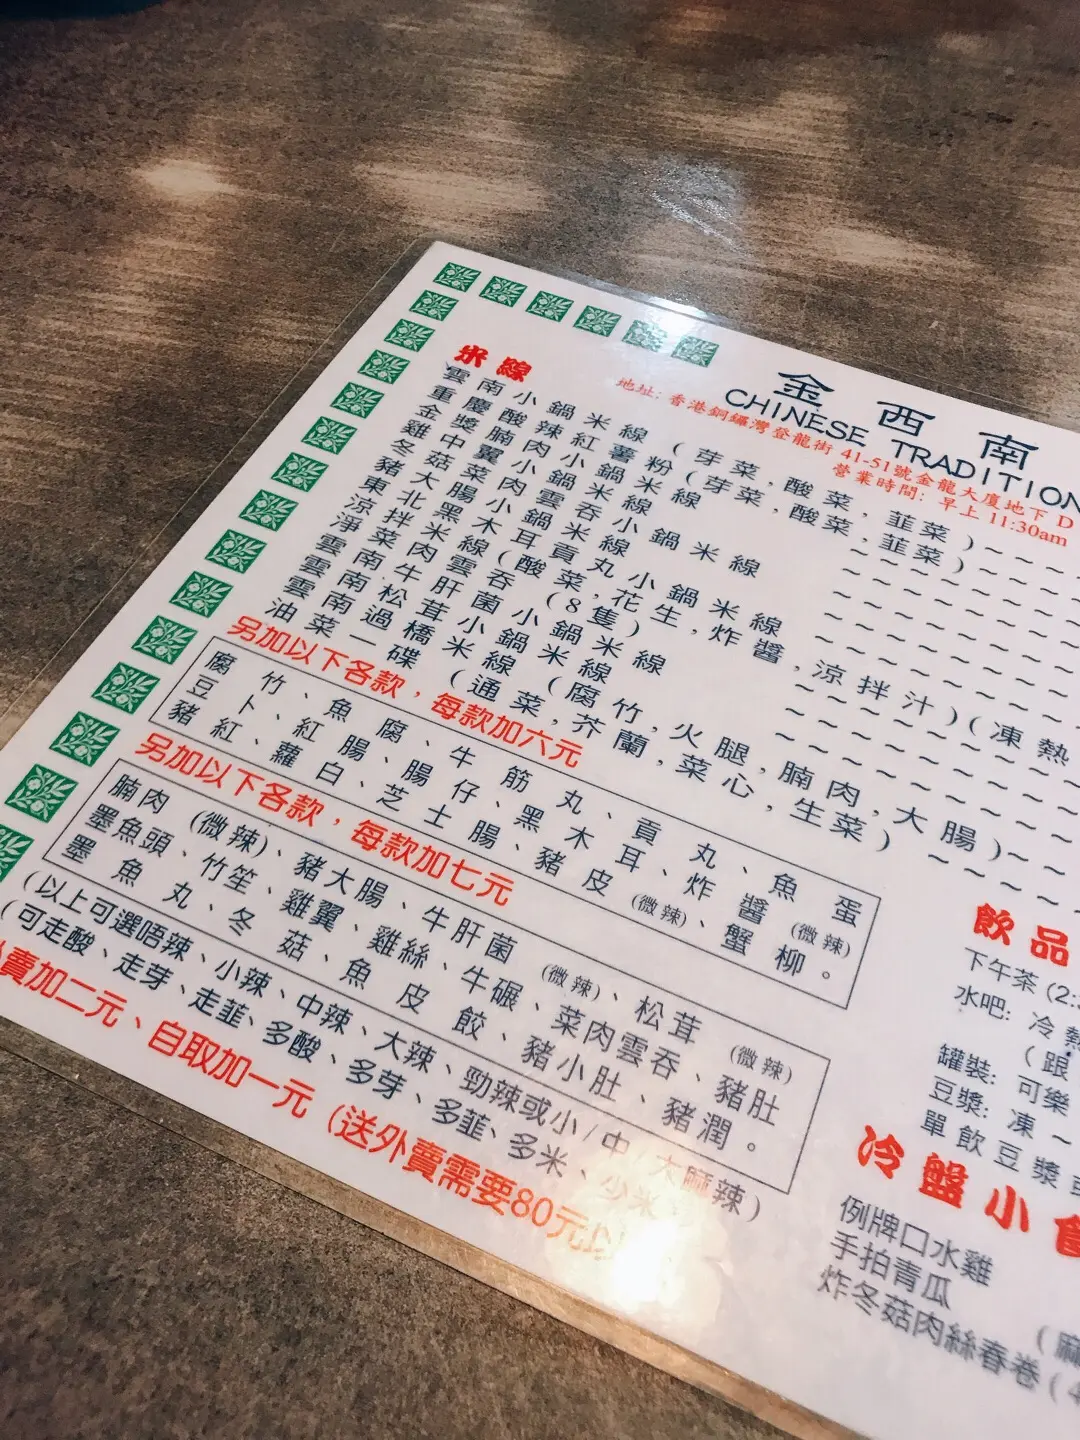 金西南
CHINESE TRADITION
地址: 香港銅鑼灣登龍街 41-51號金龍大廈地下 D
營業時間: 早上 11:30am
米線
雲南小鍋米線 (芽菜,酸菜,韮菜)~~~
重慶酸辣紅薯粉 (芽菜,酸菜,韮菜)~~~
金獎腩肉小鍋米線
雞中翼小鍋米線
冬菇菜肉雲吞小鍋米線
豬大腸小鍋米線
東北黑木耳貢丸小鍋米線
涼拌米線 (酸菜,花生,炸醬,涼拌汁)(凍熱
淨菜肉雲吞 (8隻)
雲南牛肝菌小鍋米線
雲南松茸小鍋米線
雲南過橋米線 (腐竹,火腿,腩肉,大腸)~~~
油菜一碟 (通菜,芥蘭,菜心,生菜)~
另加以下各款,每款加六元
腐竹、魚腐、牛筋丸、貢丸、魚蛋
豆卜、紅腸、腸仔、黑木耳、炸醬 (微辣)
豬紅、蘿白、芝士腸、豬皮 (微辣)、蟹柳。
另加以下各款,每款加七元
腩肉 (微辣)、豬大腸、牛肝菌 (微辣)、松茸 (微辣)
墨魚頭、竹笙、雞翼、雞絲、牛碾、菜肉雲吞、豬肚
墨魚丸、冬菇、魚皮餃、豬小肚、豬潤。
(以上可選唔辣、小辣、中辣、大辣、勁辣或小/中/大麻辣)
(可走酸、走芽、走韮、多酸、多芽、多韮、多米、少米
外賣加二元、自取加一元 (送外賣需要80元以
飲品
下午茶 (2:
水吧: 冷熱
(跟
罐裝: 可樂
豆漿: 凍~
單飲豆漿
冷盤小食
例牌口水雞
手拍青瓜 (麻
炸冬菇肉絲春卷 (4